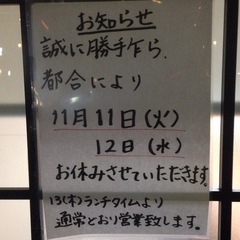 お知らせ
誠に勝手乍ら、
都合により
11月11日(火)
12日(水)
お休みさせていただきます。
13(木)ランチタイムより
通常とおり営業致します。